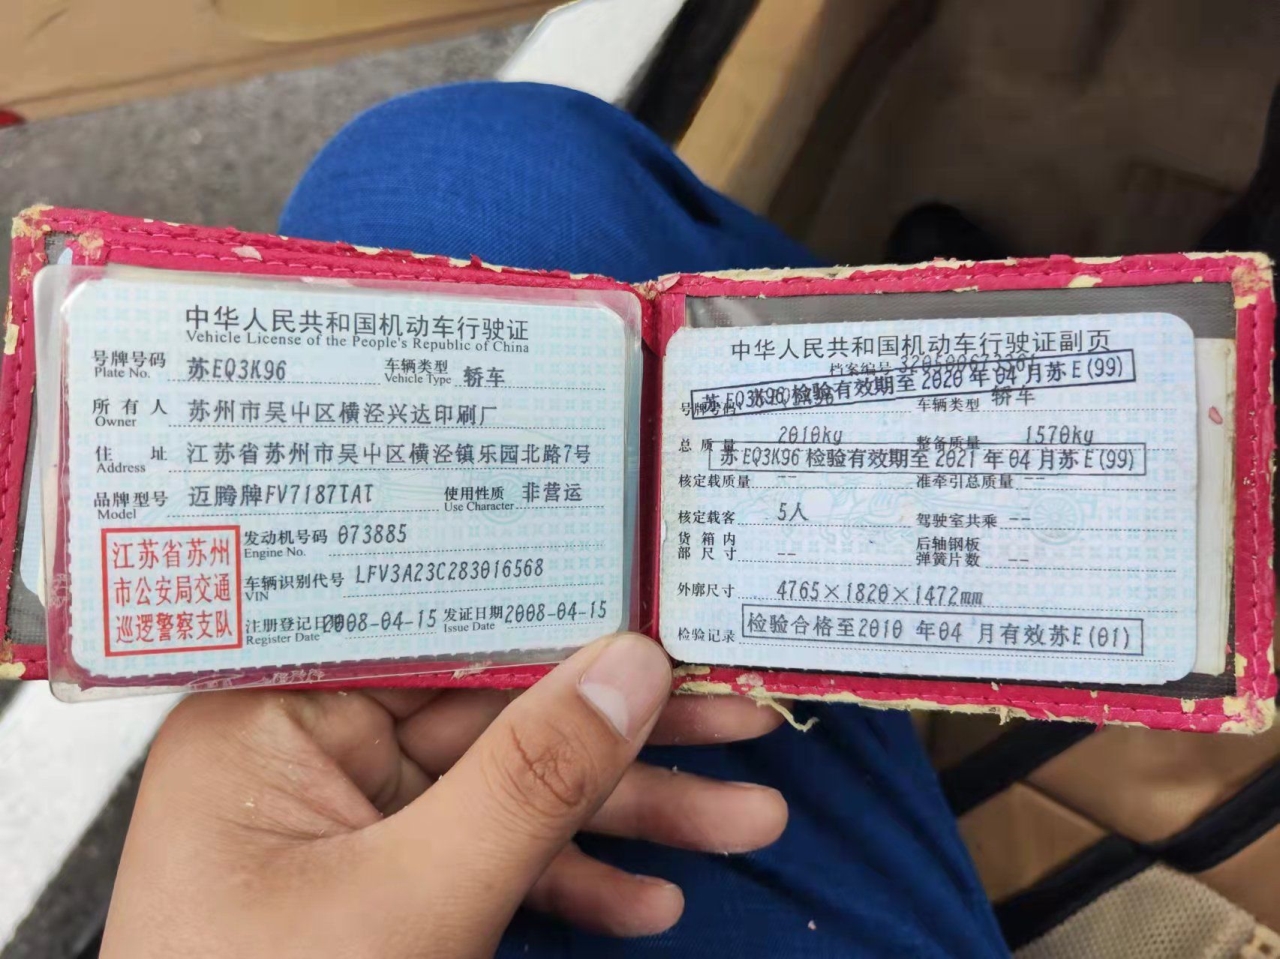 中华人民共和国机动车行驶证
Vehicle License of the People's Republic of China
号牌号码 苏EQ3K96 车辆类型 轿车
Plate No. Vehicle Type
所有人 苏州市吴中区横泾兴达印刷厂
Owner
住址 江苏省苏州市吴中区横泾镇乐园北路7号
Address
品牌型号 迈腾牌FV7187TAT 使用性质 非营运
Model Use Character
江苏省苏州
市公安局交通
巡逻警察支队
发动机号码 073885
Engine No.
车辆识别代号 LFV3A23C283016568
VIN
注册登记日期 2008-04-15 发证日期 2008-04-15
Register Date Issue Date
中华人民共和国机动车行驶证副页
档案编号
苏EQ3K96 检验有效期至 2020 年 04 月苏E(99)
号牌号码 车辆类型 轿车
总质量 2010kg 整备质量 1570kg
苏EQ3K96 检验有效期至 2021 年 04 月苏E(99)
核定载质量 -- 准牵引总质量 --
核定载客 5人 驾驶室共乘 --
货箱内部尺寸 -- 后轴钢板弹簧片数 --
外廓尺寸 4765×1820×1472mm
检验记录 检验合格至2010 年04 月有效苏E(01)